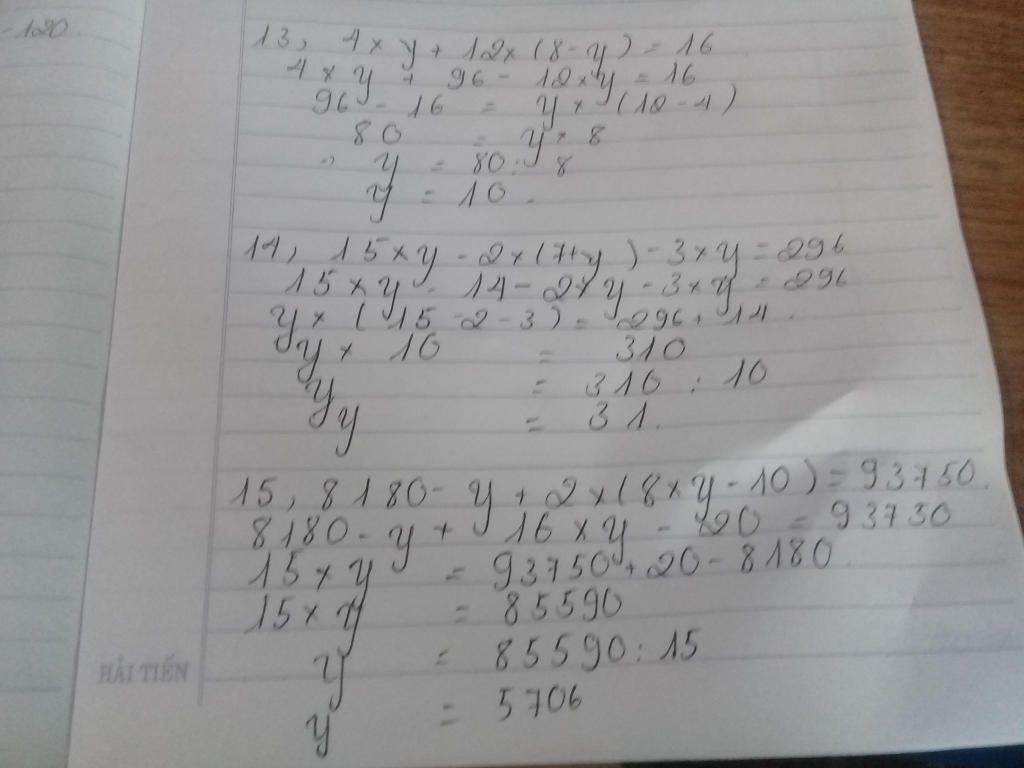 -120.
13, 4 × y + 12 × (8 - y) = 16
4 × y + 96 - 12 × y = 16
96 - 16 = y × (12 - 4)
80 = y × 8
y = 80 : 8
y = 10.
14, 15 × y - 2 × (7 + y) - 3 × y = 296
15 × y - 14 - 2 × y - 3 × y = 296
y × (15 - 2 - 3) = 296 + 14.
y × 10 = 310
y = 310 : 10
y = 31.
15, 8180 - y + 2 × (8 × y - 10) = 93750.
8180 - y + 16 × y - 20 = 93730
15 × y = 93750 + 20 - 8180.
15 × y = 85590
y = 85590 : 15
y = 5706
HẢI TIẾN